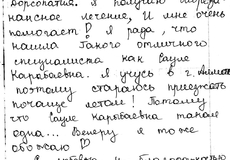 дорсопатия. Я получаю
лечение, И мне очень
помогает ♡ Я рада, что
нашла такого отличного
специалиста как Сауле
Карабаевна. Я учусь в г.
поэтому стараюсь приезжать
почаще летом! Потому
что Сауле Карабаевна такая
одна... Венеру я тоже
обожаю ♡